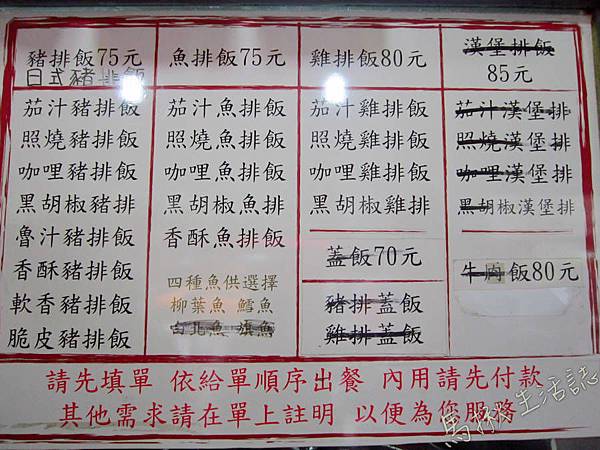 豬排飯75元
日式豬排飯
茄汁豬排飯
照燒豬排飯
咖哩豬排飯
黑胡椒豬排
魯汁豬排飯
香酥豬排飯
軟香豬排飯
脆皮豬排飯
魚排飯75元
茄汁魚排飯
照燒魚排飯
咖哩魚排飯
黑胡椒魚排
香酥魚排飯
四種魚供選擇
柳葉魚 鱈魚
台北魚 旗魚
雞排飯80元
茄汁雞排飯
照燒雞排飯
咖哩雞排飯
黑胡椒雞排
蓋飯70元
豬排蓋飯
雞排蓋飯
漢堡排飯
85元
茄汁漢堡排
照燒漢堡排
咖哩漢堡排
黑胡椒漢堡排
牛肉飯80元
請先填單 依給單順序出餐 內用請先付款
其他需求請在單上註明 以便為您服務
生活誌